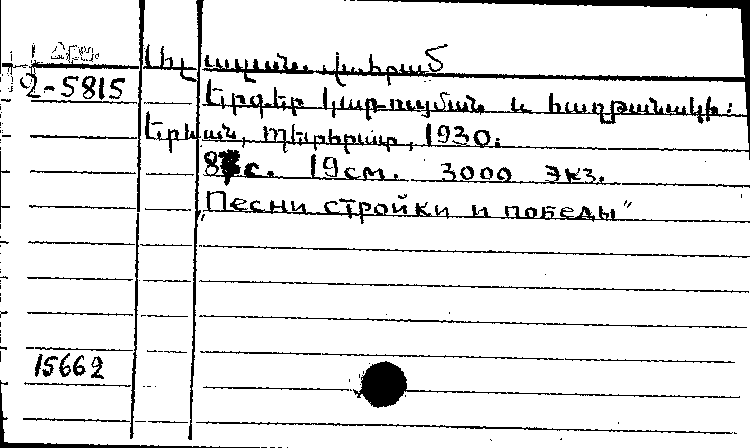 2-5815
Երգեր կառուցման և հաղթանակի:
Երևան, Պետհրատ, 1930.
8 с. 19 см. 3000 экз.
"Песни стройки и победы"
15662